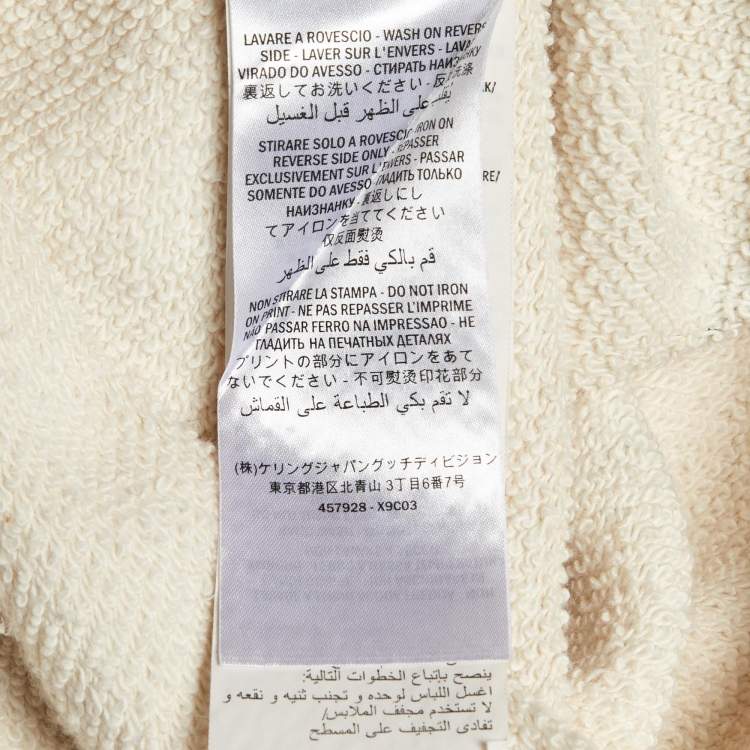 LAVARE A ROVESCIO - WASH ON REVERSE
SIDE - LAVER SUR L'ENVERS - LAVA
VIRADO DO AVESSO - СТИРАТЬ НАИЗНАНКУ
裏返してお洗いください - 反 洗涤
على الظهر قبل الغسيل
STIRARE SOLO A ROVESCIO IRON ON
REVERSE SIDE ONLY REPASSER
EXCLUSIVEMENT SUR L'ENVERS - PASSAR
SOMENTE DO AVESSO ГЛАДИТЬ ТОЛЬКО
НАИЗНАНКУ - 裏返しにし
てアイロンを当ててください
仅反面熨烫
قم بالكي فقط على الظهر
NON STIRARE LA STAMPA - DO NOT IRON
ON PRINT - NE PAS REPASSER L'IMPRIME
NÃO PASSAR FERRO NA IMPRESSAO - НЕ
ГЛАДИТЬ НА ПЕЧАТНЫХ ДЕТАЛЯХ
プリントの部分にアイロンをあて
ないでください - 不可熨烫印花部分
لا تقم بكي الطباعة على القماش
(株)ケリングジャパングッチディビジョン
東京都港区北青山 3丁目6番7号
457928 - X9C03
ينصح بإتباع الخطوات التالية:
اغسل اللباس لوحده و تجنب ثنيه و نقعه و
لا تستخدم مجفف الملابس/
تفادى التجفيف على المسطح